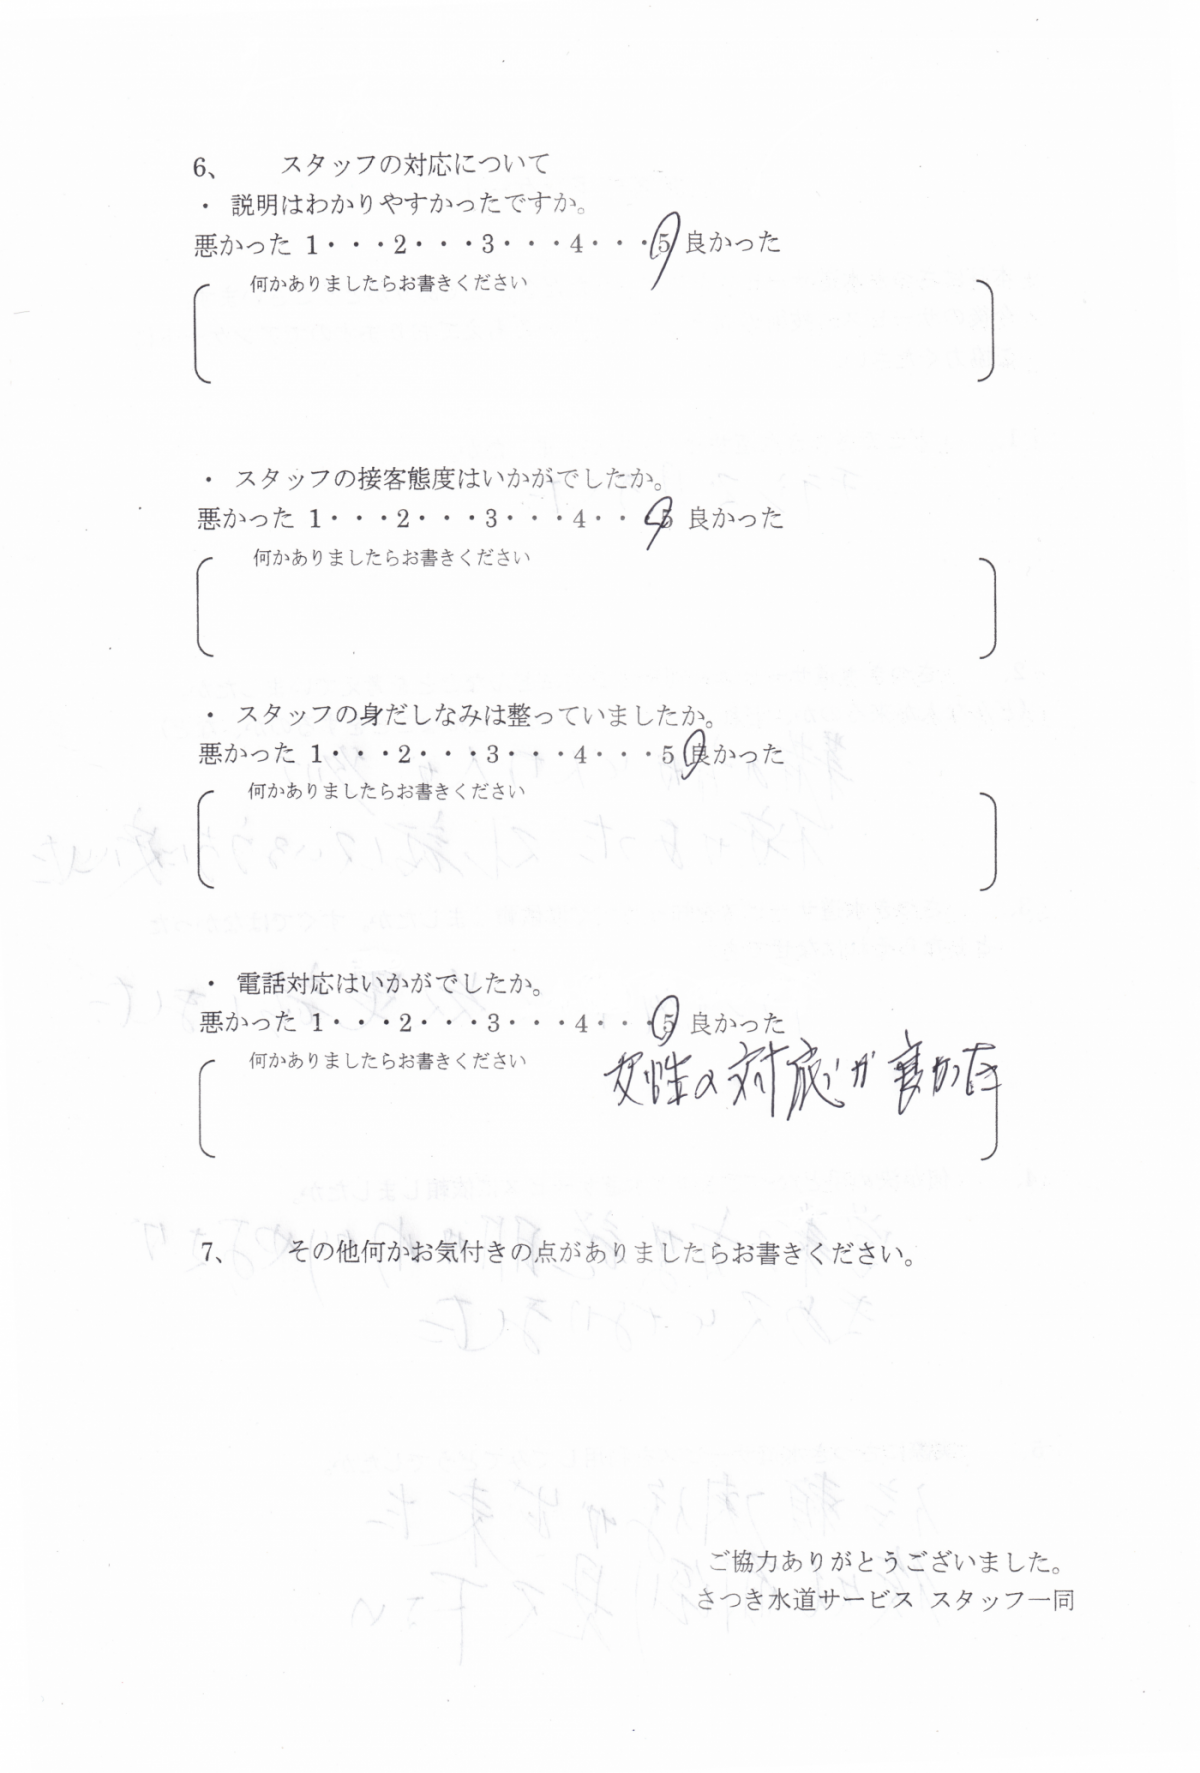 6、 スタッフの対応について
・ 説明はわかりやすかったですか。
悪かった 1・・・2・・・3・・・4・・・5 良かった
何かありましたらお書きください
・ スタッフの接客態度はいかがでしたか。
悪かった 1・・・2・・・3・・・4・・・5 良かった
何かありましたらお書きください
・ スタッフの身だしなみは整っていましたか。
悪かった 1・・・2・・・3・・・4・・・5 良かった
何かありましたらお書きください
・ 電話対応はいかがでしたか。
悪かった 1・・・2・・・3・・・4・・・5 良かった
何かありましたらお書きください
女性の対応が良かった
7、 その他何かお気付きの点がありましたらお書きください。
ご協力ありがとうございました。
さつき水道サービス スタッフ一同